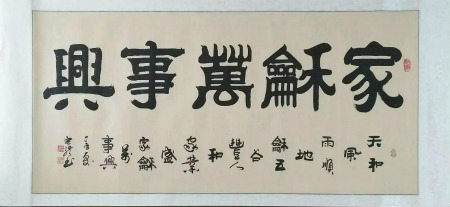 家龢萬事興
天和
風
雨順
地
龢五
谷
豐人
和
家業
盛
家龢
萬
事興